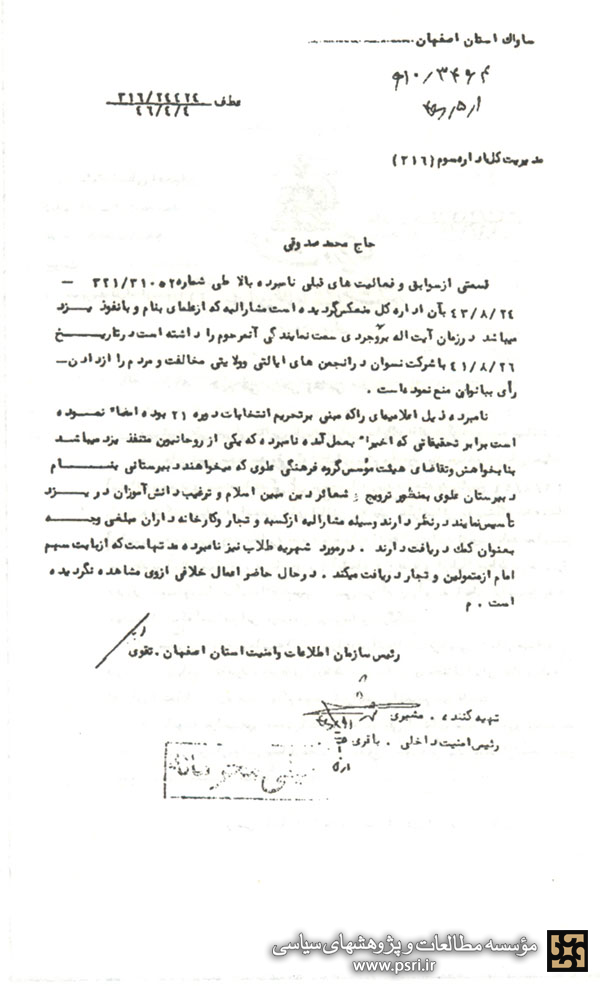 ساواك استان اصفهان
۱۰/۳۴۶۴
عطف ۳۱۶/۲۴۴۲۴
۴۶/۴/۴
مدیریت کل اداره سوم (۳۱۶)
حاج محمد صدوقی
قسمتی از سوابق و فعالیت های قبلی نامبرده بالا طی شماره ۳۲۱/۳۱۰۵۲ –
۴۳/۸/۲۴ بآن اداره کل منعکس گردیده است مشارالیه که از علمای بنام و بانفوذ یزد
میباشد در زمان آیت اله بروجردی سمت نمایندگی آنمرحوم را داشته است در تاریخ
۴۱/۸/۲۶ با شرکت نسوان در انجمن های ایالتی و ولایتی مخالفت و مردم را از دادن –
رأی ببانوان منع نموده است .
نامبرده ذیل اعلامیه‌ای را که مبنی بر تحریم انتخابات دوره ۲۱ بوده امضاء نموده
است برابر تحقیقاتی که اخیرا" بعمل آمده نامبرده که یکی از روحانیون متنفذ یزد میباشد
بنا بخواهش و تقاضای هیئت مؤسس گروه فرهنگی علوی که میخواهند دبیرستانی بنام
دبیرستان علوی بمنظور ترویج شعائر دین مبین اسلام و ترغیب دانش آموزان در یزد
تأسیس نمایند در نظر دارند وسیله مشارالیه از کسبه و تجار و کارخانه داران مبلغی وجه
بعنوان کمك دریافت دارند . در مورد شهریه طلاب نیز نامبرده مدتهاست که از بابت سهم
امام از متمولین و تجار دریافت میکند . در حال حاضر اعمال خلافی از وی مشاهده نگردیده
است . م
رئیس سازمان اطلاعات و امنیت استان اصفهان . تقوی
تهیه کننده . مشیری
رئیس امنیت داخلی . باقری
خیلی محرمانه
مؤسسه مطالعات و پژوهشهای سیاسی
www.psri.ir